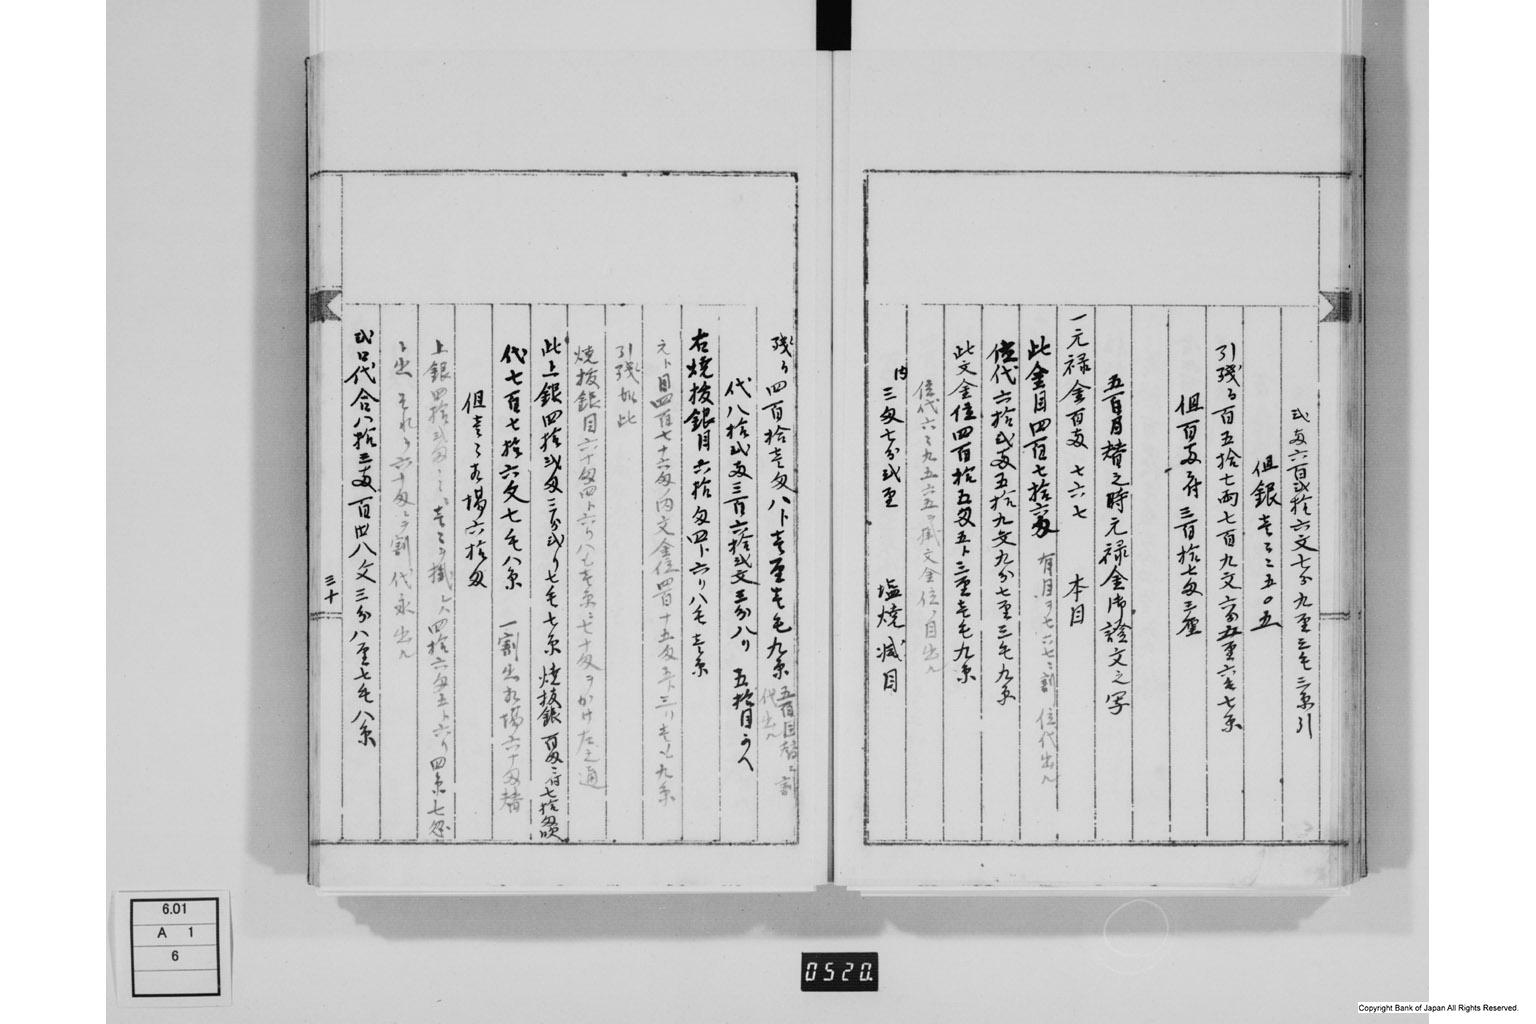 弐両六百弐拾六文七分九厘三毛三糸引
但銀壱〻三五〇五
引残る百五拾七両七百九文六分五厘六毛七糸
但百両ニ付三百拾七匁三厘
五百目替之時元禄金御證文之写
一元禄金百両 七六七 本目
此金目四百七拾六匁 有目ヲ七六七ニ割 位代出ル
位代六拾弐両五拾九文九分七厘三毛九糸
此文金位四百拾五匁五ト三厘壱毛九糸
位代六〻九五六五ヲ掛文金位ノ目出ル
内 三匁七分弐厘 塩焼減目
残る四百拾壱匁八ト壱厘壱毛九糸 五百目替ニ割代出ル
代八拾弐両三百六拾弐文三分八リ 五拾目かへ
右焼抜銀目六拾匁四ト六リ八毛壱糸
元ト目四百七十六匁ノ内文金位四百十五匁五ト三リ壱毛九糸
引残如此
焼抜銀目六十匁四ト六リ八毛壱糸ニ七十匁ヲかけ左之通
此上銀四拾弐匁三分弐リ七毛七糸 焼抜銀百匁ニ付七拾匁
代七百七拾六文七毛八糸 一割出相場六十匁替
但壱〻相場六拾匁
上銀四拾弐匁
ト出 それヲ六十匁ニ割 代永出ル
弐口代合八拾三両百四八文三分八厘七毛八糸
三十
6.01
A 1
6
0520.
Copyright Bank of Japan All Rights Reserved.